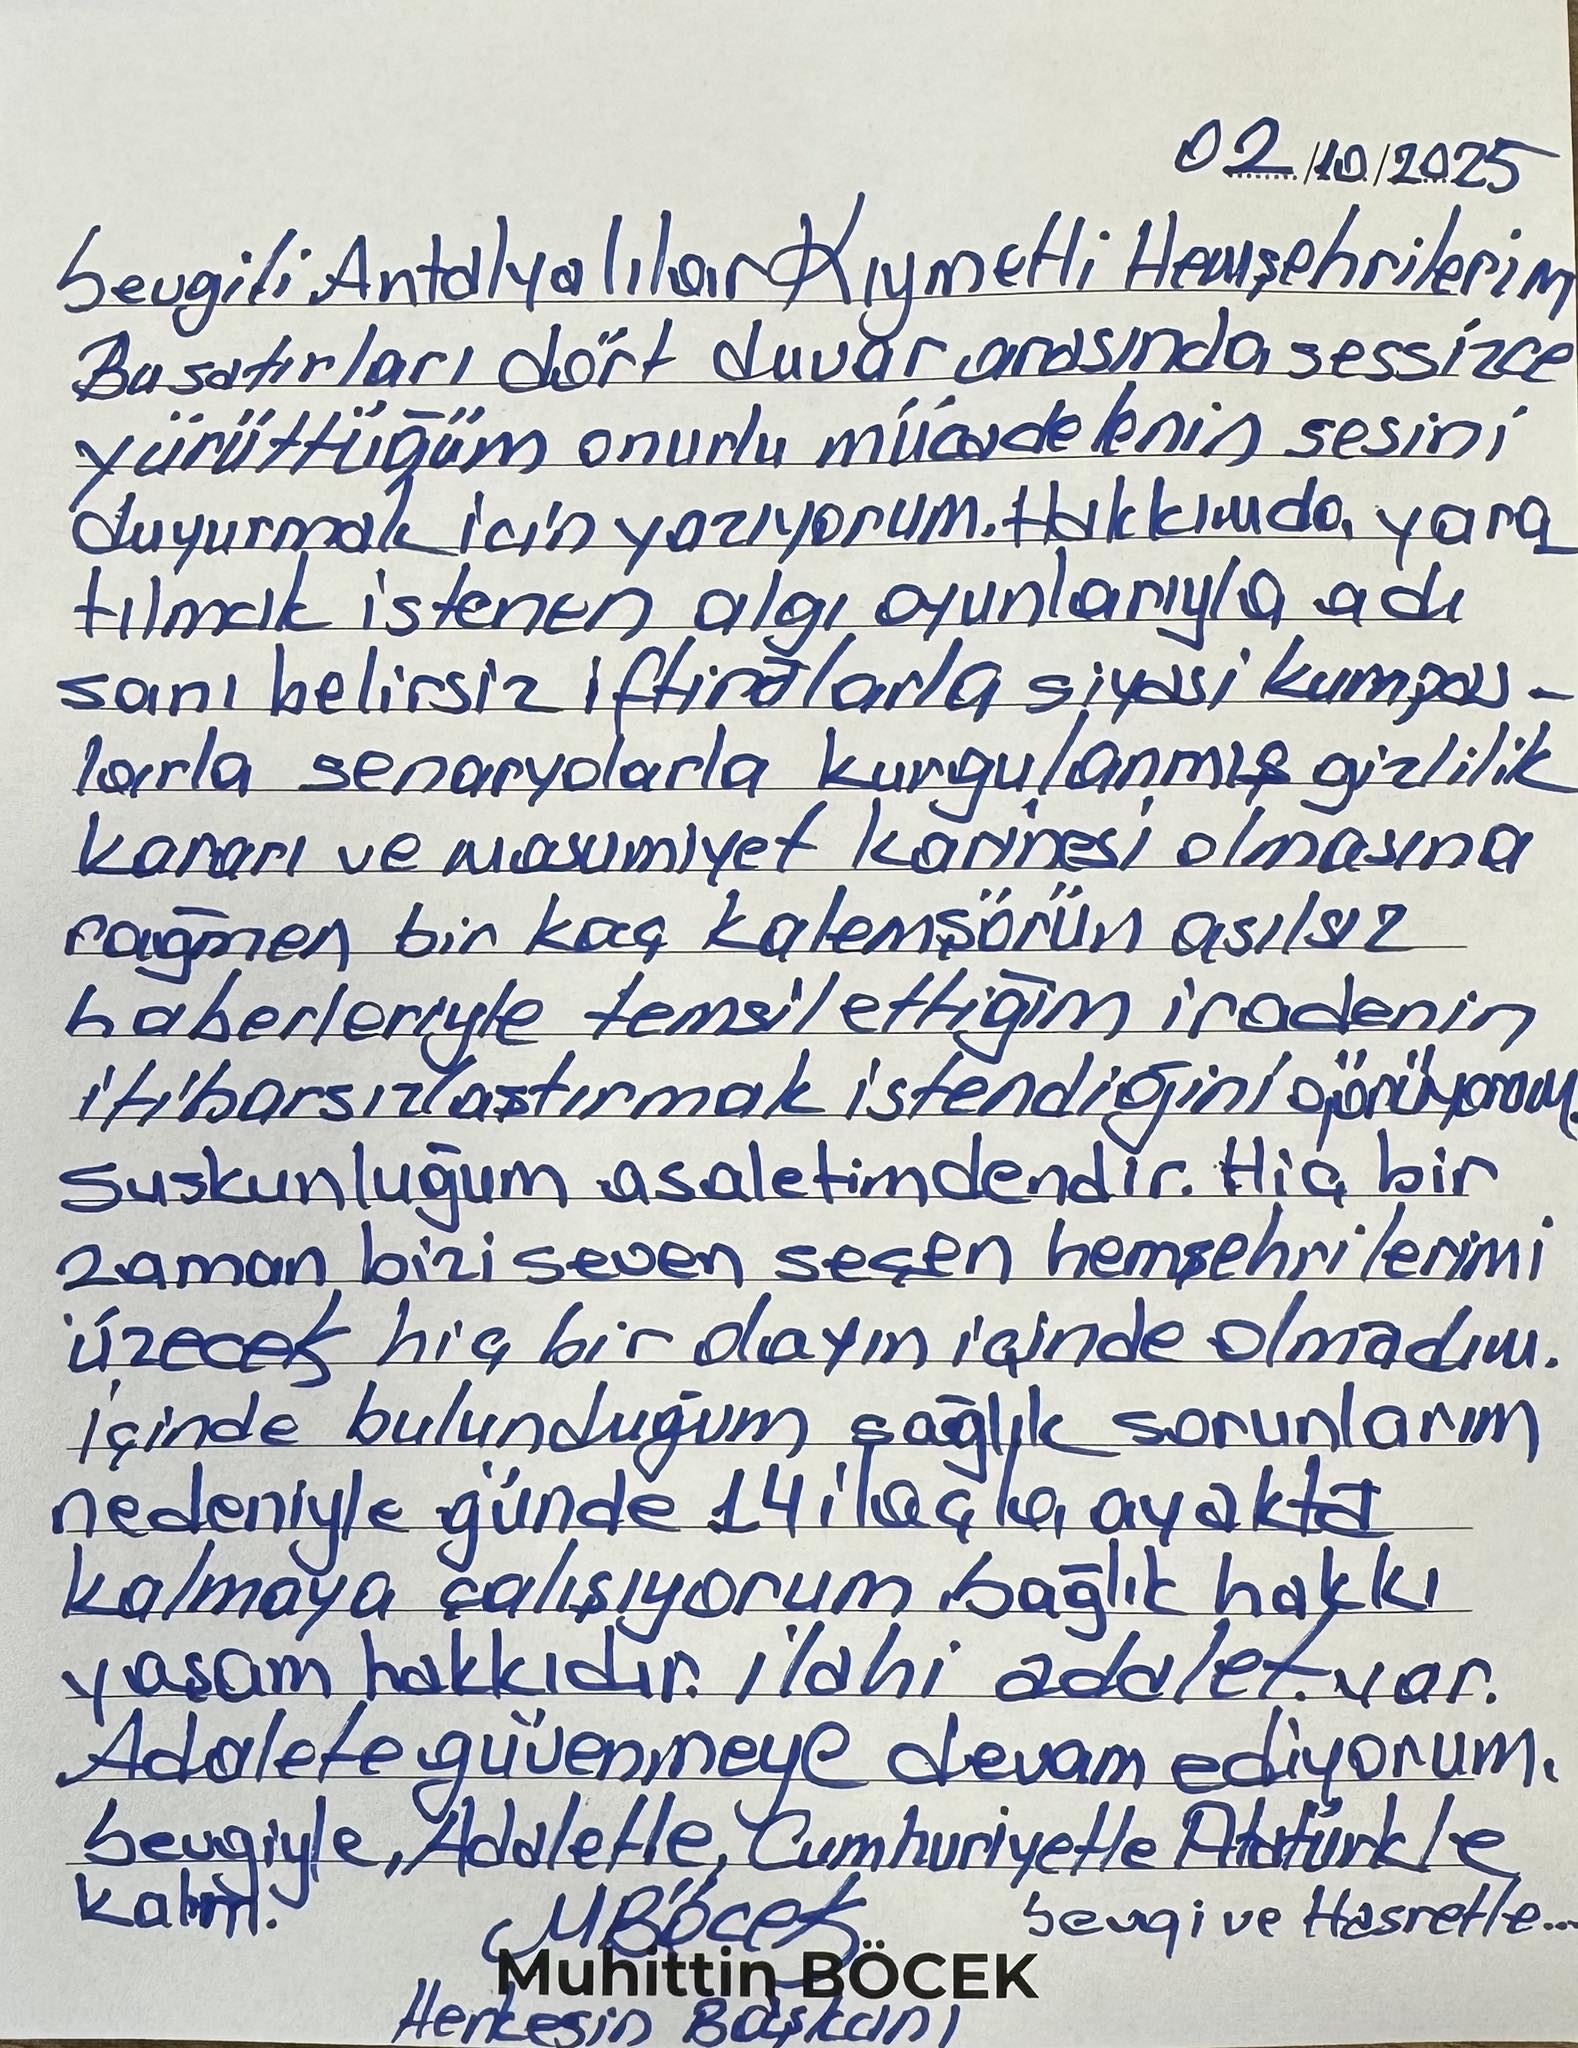 02/10/2025
Sevgili Antalyalılar Kıymetli Hemşehrilerim
Bu satırları dört duvar arasında sessizce
yürüttüğüm onurlu mücadelenin sesini
duyurmak için yazıyorum. Hakkımda yara
tılmak istenen algı oyunlarıyla adı
sanı belirsiz iftiralarla siyasi kumpas-
larla senaryolarla kurgulanmış gizlilik
kararı ve masumiyet karinesi olmasına
rağmen bir kaç kalemşörün asılsız
haberleriyle temsil ettiğim iradenin
itibarsızlaştırmak istendiğini görüyorum.
Suskunluğum asaletimdendir. Hiç bir
zaman bizi seven seçen hemşehrilerimi
üzecek hiç bir olayın içinde olmadım.
içinde bulunduğum sağlık sorunlarım
nedeniyle günde 14 ilaçla ayakta
kalmaya çalışıyorum sağlık hakkı
yaşam hakkıdır. ilahi adalet var.
Adalete güvenmeye devam ediyorum.
Sevgiyle, Adaletle, Cumhuriyetle Atatürk'le
kalın.
Sevgi ve Hasretle...
MBöcek
Muhittin BÖCEK
Herkesin Başkanı